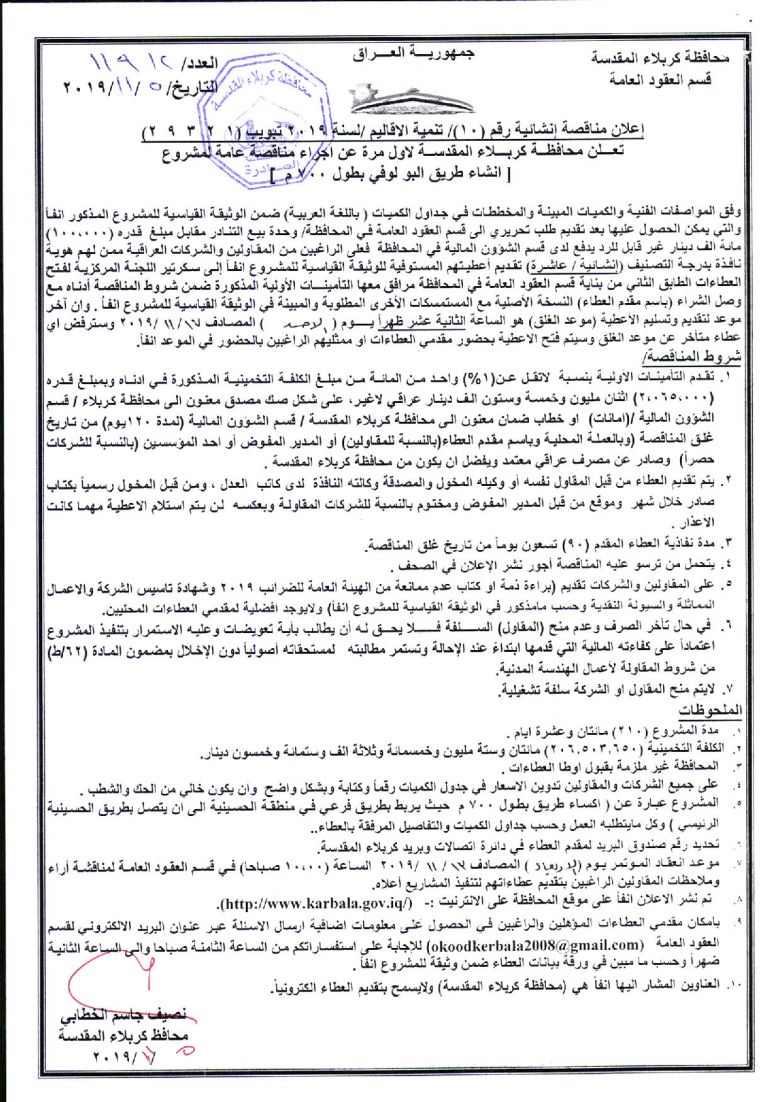 جمهورية العراق
محافظة كربلاء المقدسة
قسم العقود العامة
العدد/ ١١٩١٢
التاريخ/ ٥/ ١١/ ٢٠١٩
محافظة كربلاء المقدسة
الصادرة
إعلان مناقصة إنشائية رقم (١٠)/ تنمية الاقاليم /لسنة ٢٠١٩ تبويب (٢٩٣٢١)
تعلن محافظة كربلاء المقدسة لاول مرة عن اجراء مناقصة عامة لمشروع
[ انشاء طريق البو لوفي بطول ٧٠٠ م ]
وفق المواصفات الفنية والكميات المبينة والمخططات في جداول الكميات ( باللغة العربية) ضمن الوثيقة القياسية للمشروع المذكور انفاً
والتي يمكن الحصول عليها بعد تقديم طلب تحريري الى قسم العقود العامة في المحافظة/ وحدة بيع التنادر مقابل مبلغ قدره (١٠٠,٠٠٠)
مائة الف دينار غير قابل للرد يدفع لدى قسم الشؤون المالية في المحافظة فعلى الراغبين من المقاولين والشركات العراقية ممن لهم هوية
نافذة بدرجة التصنيف (إنشائية / عاشرة) تقديم أعطيتهم المستوفية للوثيقة القياسية للمشروع انفاً إلى سكرتير اللجنة المركزية لفتح
العطاءات الطابق الثاني من بناية قسم العقود العامة في المحافظة مرافق معها التأمينات الأولية المذكورة ضمن شروط المناقصة أدناه مع
وصل الشراء (باسم مقدم العطاء) النسخة الأصلية مع المستمسكات الأخرى المطلوبة والمبينة في الوثيقة القياسية للمشروع انفاً . وان آخر
موعد لتقديم وتسليم الاعطية (موعد الغلق) هو الساعة الثانية عشر ظهراً يوم ( الاحد ) المصادف ١٧/ ١١/ ٢٠١٩ وسترفض اي
عطاء متأخر عن موعد الغلق وسيتم فتح الاعطية بحضور مقدمي العطاءات او ممثليهم الراغبين بالحضور في الموعد انفاً.
شروط المناقصة/
١. تقدم التأمينات الأولية بنسبة لاتقل عن(١%) واحد من المائة من مبلغ الكلفة التخمينية المذكورة في ادناه وبمبلغ قدره
(٢,٠٦٥,٠٠٠) اثنان مليون وخمسة وستون الف دينار عراقي لاغير، على شكل صك مصدق معنون الى محافظة كربلاء / قسم
الشؤون المالية /(امانات) او خطاب ضمان معنون الى محافظة كربلاء المقدسة / قسم الشؤون المالية (لمدة ١٢٠يوم) من تاريخ
غلق المناقصة (وبالعملة المحلية وباسم مقدم العطاء(بالنسبة للمقاولين) أو المدير المفوض أو احد المؤسسين (بالنسبة للشركات
حصراً) وصادر عن مصرف عراقي معتمد ويفضل ان يكون من محافظة كربلاء المقدسة .
٢. يتم تقديم العطاء من قبل المقاول نفسه أو وكيله المخول والمصدقة وكالته النافذة لدى كاتب العدل ، ومن قبل المخول رسمياً بكتاب
صادر خلال شهر وموقع من قبل المدير المفوض ومختوم بالنسبة للشركات المقاولة وبعكسه لن يتم استلام الاعطية مهما كانت
الاعذار .
٣. مدة نفاذية العطاء المقدم (٩٠) تسعون يوماً من تاريخ غلق المناقصة.
٤. يتحمل من ترسو عليه المناقصة أجور نشر الإعلان في الصحف .
٥. على المقاولين والشركات تقديم (براءة ذمة او كتاب عدم ممانعة من الهيئة العامة للضرائب ٢٠١٩ وشهادة تاسيس الشركة والاعمال
المماثلة والسيولة النقدية وحسب مامذكور في الوثيقة القياسية للمشروع انفاً) ولايوجد افضلية لمقدمي العطاءات المحليين.
٦. في حال تأخر الصرف وعدم منح (المقاول) السلفة فلا يحق له أن يطالب بأية تعويضات وعليه الاستمرار بتنفيذ المشروع
اعتماداً على كفاءته المالية التي قدمها ابتداءً عند الإحالة وتستمر مطالبته لمستحقاته أصولياً دون الإخلال بمضمون المادة (٦٢/ط)
من شروط المقاولة لأعمال الهندسة المدنية.
٧. لايتم منح المقاول او الشركة سلفة تشغيلية.
الملحوظات
١. مدة المشروع (٢١٠) مائتان وعشرة ايام .
٢. الكلفة التخمينية (٢٠٦,٥٠٣,٦٥٠) مائتان وستة مليون وخمسمائة وثلاثة الف وستمائة وخمسون دينار.
٣. المحافظة غير ملزمة بقبول اوطا العطاءات .
٤. على جميع الشركات والمقاولين تدوين الاسعار في جدول الكميات رقماً وكتابة وبشكل واضح وان يكون خالي من الحك والشطب .
٥. المشروع عبارة عن ( اكساء طريق بطول ٧٠٠ م حيث يربط بطريق فرعي في منطقة الحسينية الى ان يتصل بطريق الحسينية
الرئيسي ) وكل مايتطلبه العمل وحسب جداول الكميات والتفاصيل المرفقة بالعطاء..
٦. تحديد رقم صندوق البريد لمقدم العطاء في دائرة اتصالات وبريد كربلاء المقدسة.
٧. موعد انعقاد المؤتمر يوم ( ) المصادف / ١١/ ٢٠١٩ الساعة (١٠,٠٠ صباحا) في قسم العقود العامة لمناقشة أراء
وملاحظات المقاولين الراغبين بتقديم عطاءاتهم لتنفيذ المشاريع أعلاه.
٨. تم نشر الاعلان انفاً على موقع المحافظة على الانترنيت :- (http://www.karbala.gov.iq/).
٩. بامكان مقدمي العطاءات المؤهلين والراغبين في الحصول على معلومات اضافية ارسال الاسئلة عبر عنوان البريد الالكتروني لقسم
العقود العامة (okoodkerbala2008@gmail.com) للإجابة على استفساراتكم من الساعة الثامنة صباحا والى الساعة الثانية
ضهراً وحسب ما مبين في ورقة بيانات العطاء ضمن وثيقة للمشروع انفاً .
١٠. العناوين المشار اليها انفاً هي (محافظة كربلاء المقدسة) ولايسمح بتقديم العطاء الكترونياً.
نصيف جاسم الخطابي
محافظ كربلاء المقدسة
٥ /١١/ ٢٠١٩